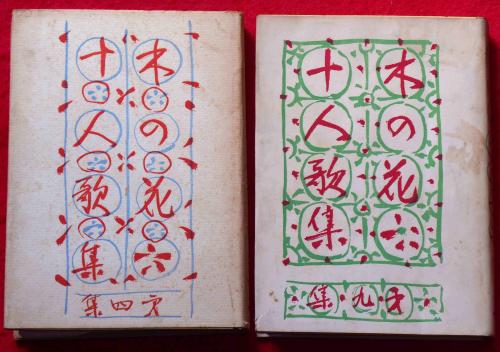 木の花六
十人歌集
㐧四集
木の花六
十人歌集
㐧九集